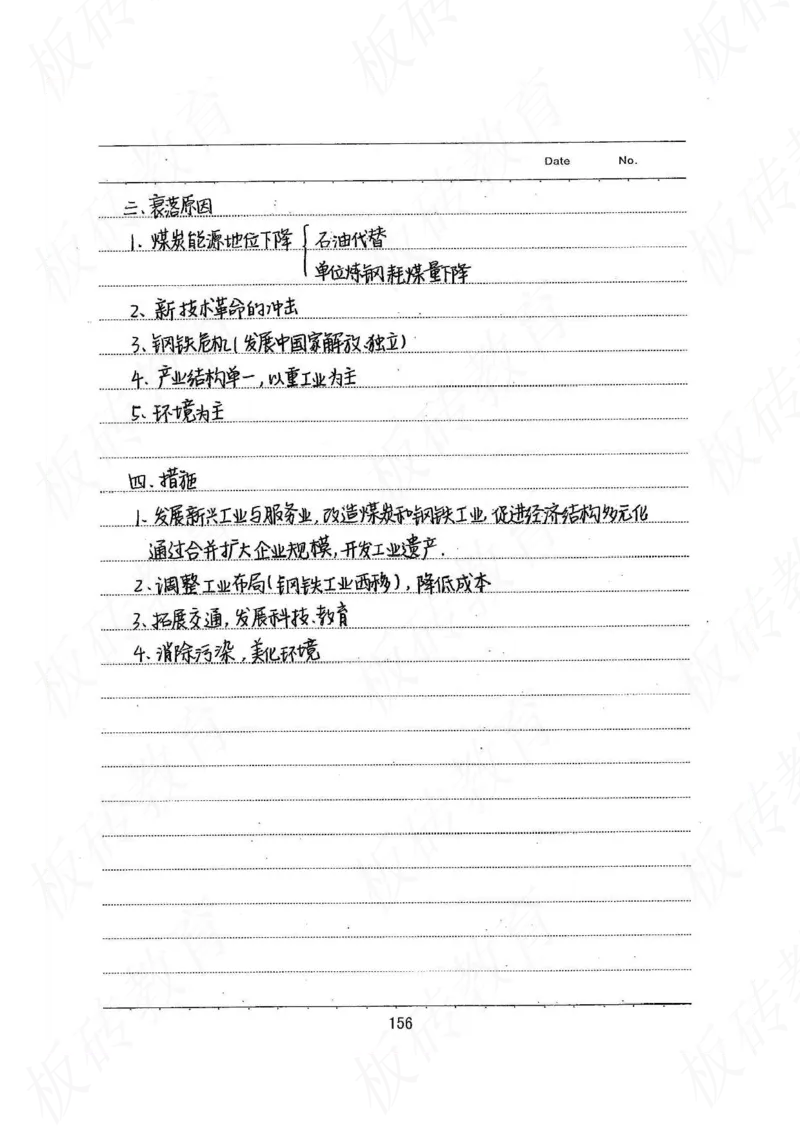 Date No.
三、衰落原因
1、煤炭能源地位下降{石油代替
单位炼钢耗煤量下降
2、新技术革命的冲击
3、钢铁危机(发展中国家解放、独立)
4、产业结构单一,以重工业为主
5、环境为主
四、措施
1、发展新兴工业与服务业,改造煤炭和钢铁工业,促进经济结构多元化
通过合并扩大企业规模,开发工业遗产.
2、调整工业布局(钢铁工业西移),降低成本
3、拓展交通,发展科技、教育
4、消除污染,美化环境
156
板砖教育